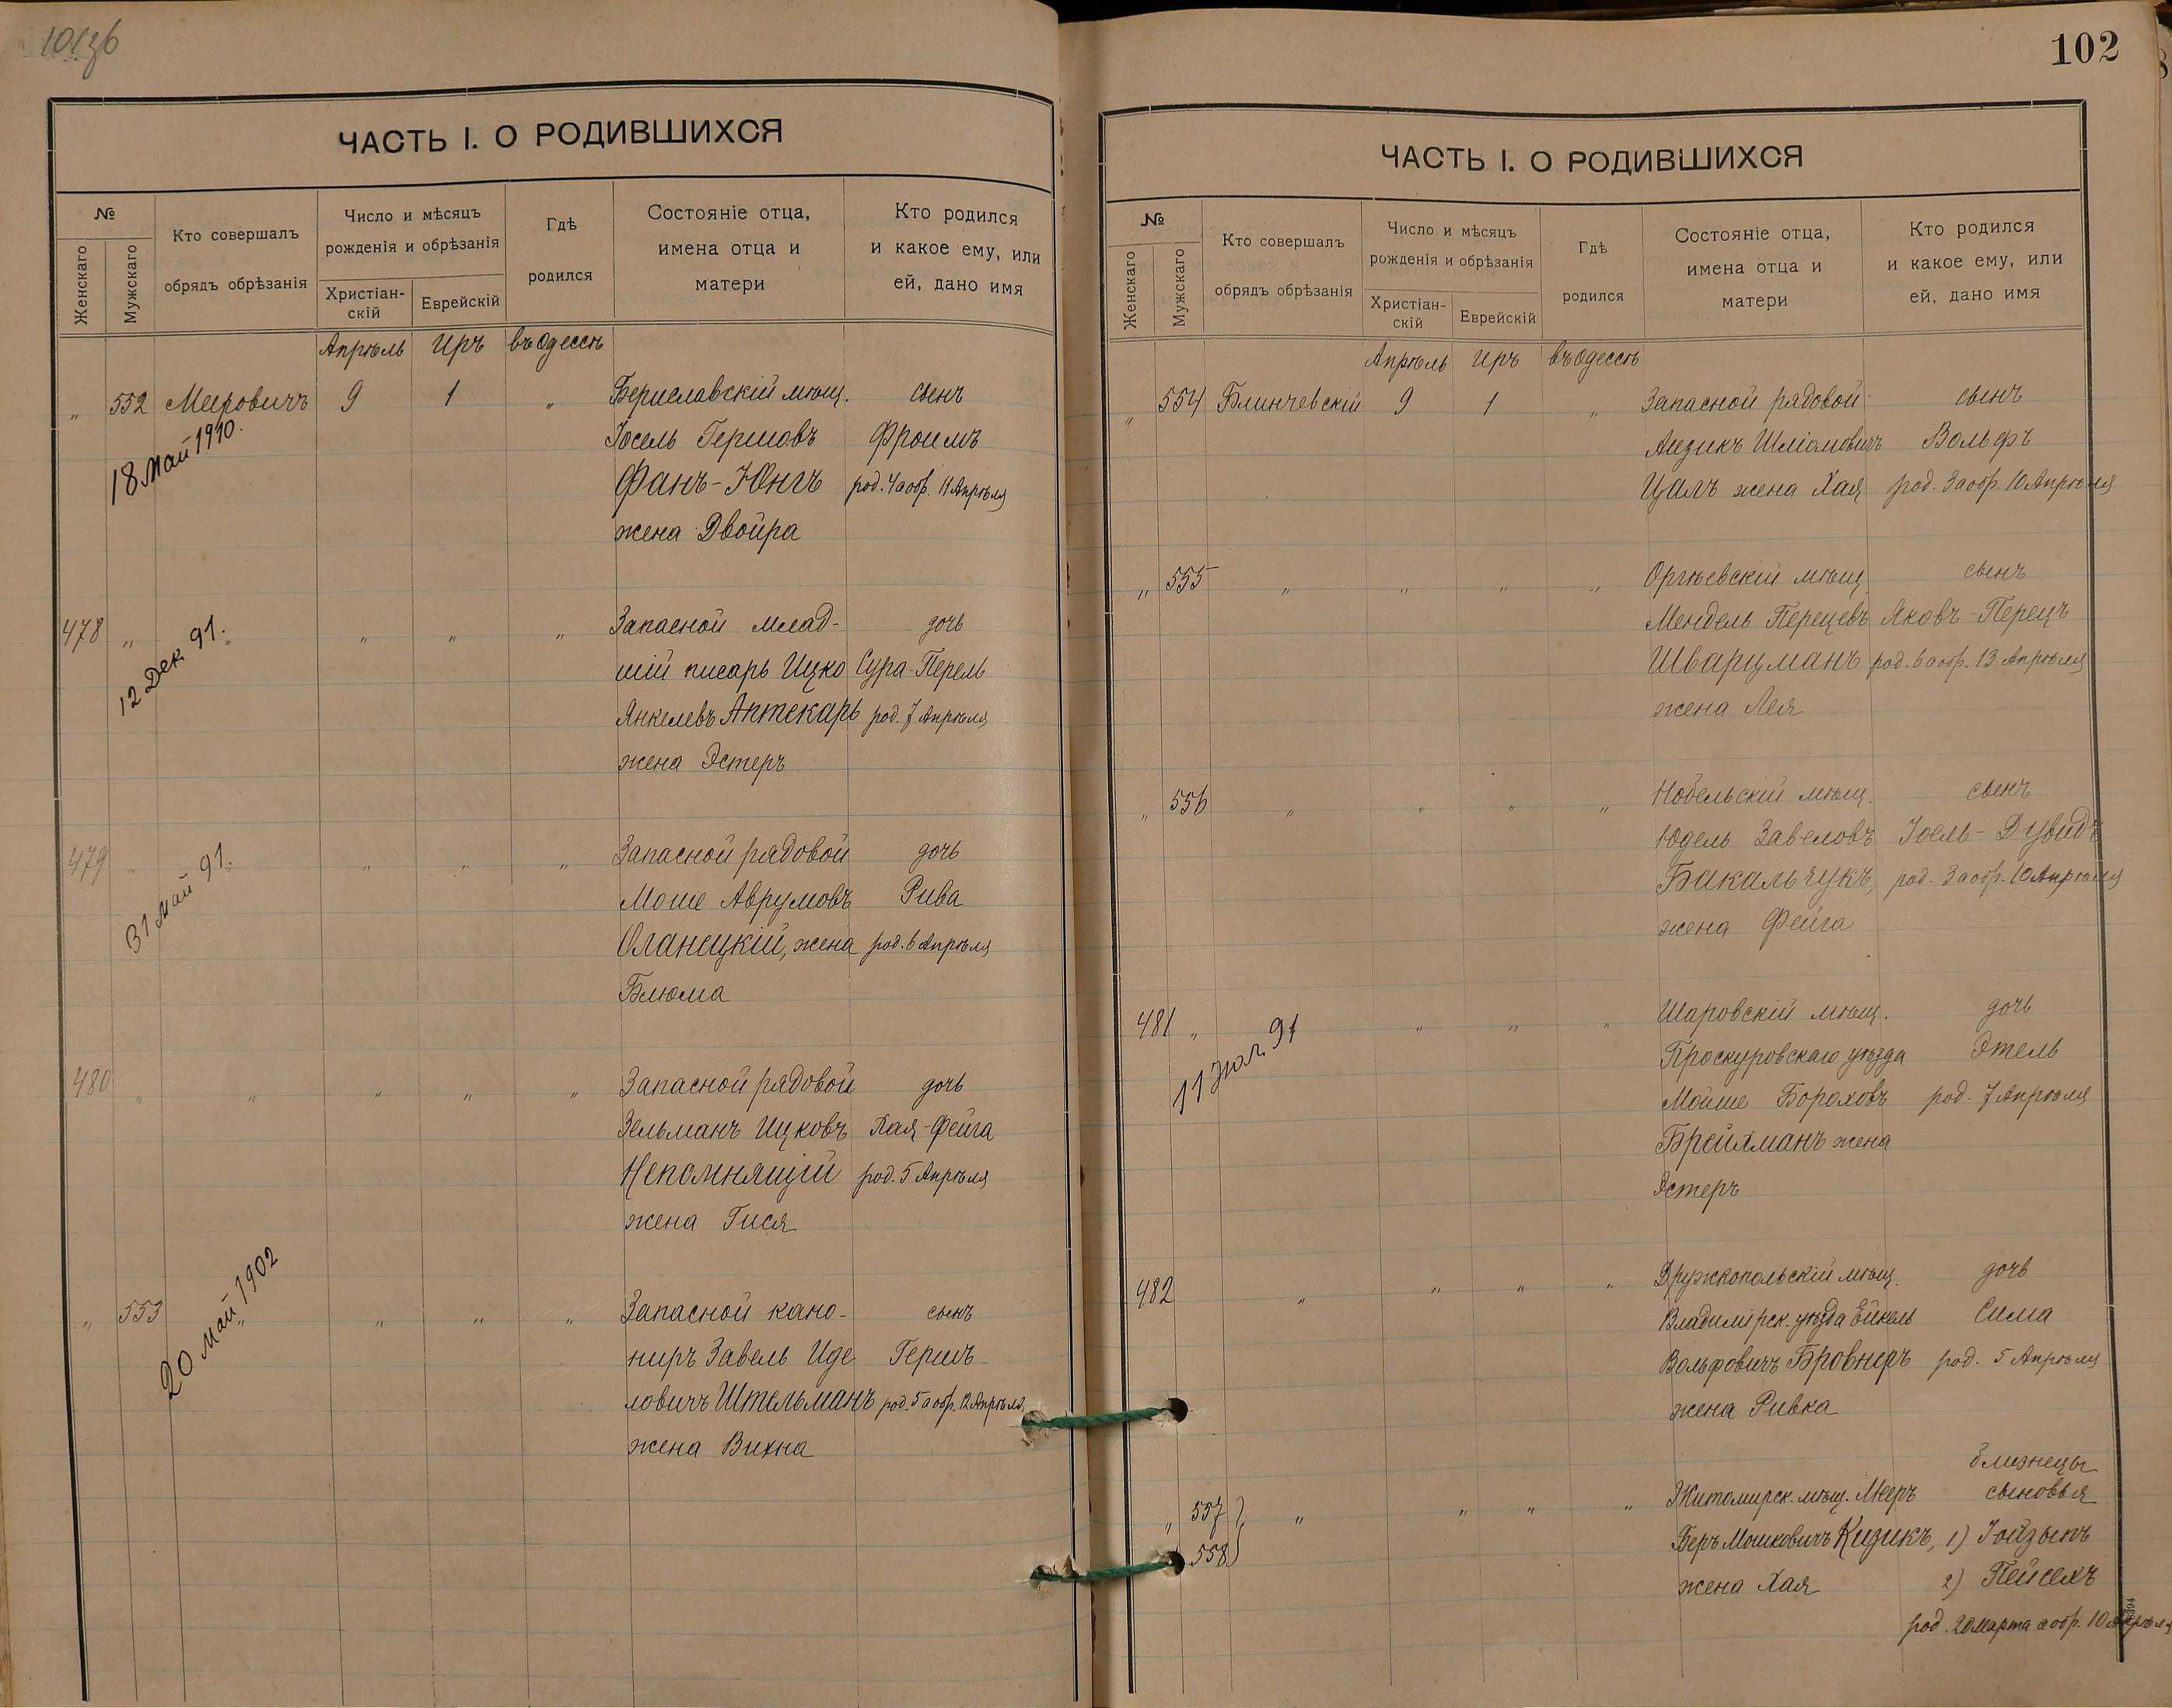 101зб
ЧАСТЬ I. О РОДИВШИХСЯ
№
Женскаго
Мужскаго
Кто совершалъ
обрядъ обрѣзанія
Число и мѣсяцъ
рожденія и обрѣзанія
Христіан-
скій
Еврейскій
Гдѣ
родился
Состояніе отца,
имена отца и
матери
Кто родился
и какое ему, или
ей, дано имя
Апрѣль Иръ въ Одессѣ
„ 552 Меировичъ 9 1 „ Бериславскій мѣщ. сынъ
18 Май 1910.
Іосель Гершовъ Фроимъ
Фанъ-Юнгъ род. 4 а обр. 11 Апрѣля
жена Двойра
478 „ „ „ „ „ Запасной млад- дочь
12 Дек. 91.
шій писарь Ицко Сура-Перель
Янкелевъ Аптекарь род. 7 Апрѣля
жена Эстеръ
479 „ „ „ „ „ Запасной рядовой дочь
31 Май 91.
Моше Аврумовъ Рива
Оланецкій, жена род. 6 Апрѣля
Блюма
480 „ „ „ „ „ Запасной рядовой дочь
Зельманъ Ицковъ Хая-Фейга
Непомнящій род. 5 Апрѣля
жена Гися
„ 553 „ „ „ „ Запасной кано- сынъ
20 Май 1902
ниръ Завель Иде Гершъ
ловичъ Штельманъ род. 5 а обр. 12 Апрѣля
жена Вихна
102
ЧАСТЬ I. О РОДИВШИХСЯ
№
Женскаго
Мужскаго
Кто совершалъ
обрядъ обрѣзанія
Число и мѣсяцъ
рожденія и обрѣзанія
Христіан-
скій
Еврейскій
Гдѣ
родился
Состояніе отца,
имена отца и
матери
Кто родился
и какое ему, или
ей, дано имя
Апрѣль Иръ въ Одессѣ
„ 554 Блинчевскій 9 1 „ Запасной рядовой сынъ
Аизикъ Шліомовичъ Вольфъ
Цалъ жена Хая род. 3 а обр. 10 Апрѣля
„ 555 „ „ „ „ Оргѣевскій мѣщ. сынъ
Мендель Перецевъ Яковъ-Перецъ
Шварцманъ род. 6 а обр. 13 Апрѣля
жена Лея
„ 556 „ „ „ „ Нобельскій мѣщ. сынъ
Юдель Завеловъ Іоель-Дувидъ
Бакальчукъ, род. 3 а обр. 10 Апрѣля
жена Фейга
481 „ „ „ „ Шаровскій мѣщ. дочь
11 Іюл. 91
Проскуровскаго уѣзда Этель
Мойше Бороховъ род. 7 Апрѣля
Брейтманъ жена
Эстеръ
482 „ „ „ „ Дружкопольскій мѣщ. дочь
Владимірск. уѣзда Ейкель Сима
Вольфовичъ Бровнеръ род. 5 Апрѣля
жена Ривка
близнецы
„ 557 „ „ „ „ Житомирск. мѣщ. Мееръ сыновья
558 Беръ Мошковичъ Кизикъ, 1) Іойзыпъ
жена Хая 2) Пейсехъ
род. 20 марта а обр. 10 Апрѣля